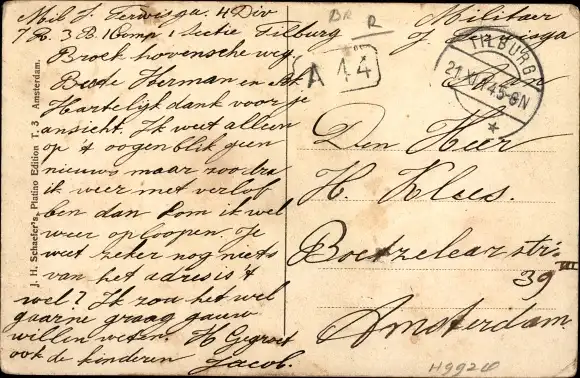 Mil J. Terwisga. 4 Div
7 R. 3 B. 1 Comp 1 Sectie Tilburg
Broek hovensche weg.
Beste Herman en
Hartelijk dank voor je
ansicht. Ik weet alleen
op 't oogenblik geen
nieuws maar zoodra
ik weer met verlof
ben dan kom ik wel
weer oploopen. Je
weet zeker nog niets
van het adres is 't
wel? Ik zou het wel
gaarne graag gauw
willen weten. H Gegroet
ook de kinderen Jacob.
J. H. Schaefer's, Platino Edition T. 3 Amsterdam.
BR R
A 14
Militair
of Terwisga
TILBURG
Aan
Den Heer
H. Klees.
Boetzelaerstr.
39 III
Amsterdam
H9920